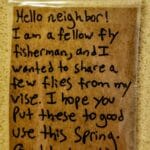 Hello neighbor!
I am a fellow fly
fisherman, and I
wanted to share a
few flies from my
vise. I hope you
put these to good
use this Spring.